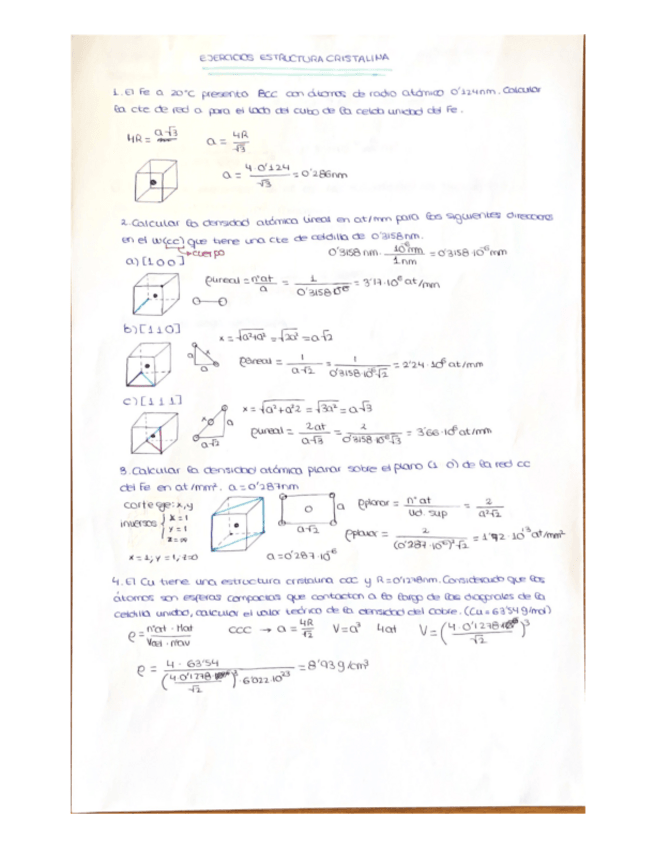 EJERCICIOS ESTRUCTURA CRISTALINA
1. El Fe a 20°C presenta BCC con átomos de radio atómico 0'124nm. Calcular
la cte de red a para el lado del cubo de la celda unidad del Fe.
4R = a√3 a = 4R/√3
a = 4·0'124/√3 = 0'286nm
2. Calcular la densidad atómica lineal en at/mm para las siguientes direcciones
en el W(cc) que tiene una cte de celdilla de 0'3158nm.
cuerpo
0'3158 nm · 10⁻⁶mm/1nm = 0'3158·10⁻⁶mm
a) [1 0 0]
ρlineal = nºat/a = 1/0'3158·10⁻⁶ = 3'17·10⁶ at/mm
b) [1 1 0]
x = √a²+a² = √2a² = a√2
a
a
ρlineal = 1/a√2 = 1/0'3158·10⁻⁶√2 = 2'24·10⁶ at/mm
c) [1 1 1]
x = √a²+a²2 = √3a² = a√3
x
a
a√2
ρlineal = 2at/a√3 = 2/0'3158·10⁻⁶√3 = 3'66·10⁶ at/mm
3. Calcular la densidad atómica planar sobre el plano (1 0) de la red cc
del Fe en at/mm². a=0'287nm
corte eje: x,y
inversos x=1 y=1 z=∞
a
a√2
ρplanar = nº at/Ud. sup = 2/a²√2
ρplanar = 2/(0'287·10⁻⁶)²√2 = 1'72·10¹³ at/mm²
x=1, y=1, z=0
a=0'287·10⁻⁶
4. El Cu tiene una estructura cristalina CCC y R=0'1278nm. Considerado que los
átomos son esferas compactas que contactan a lo largo de las diagonales de la
celdilla unidad, calcular el valor teórico de la densidad del cobre. (Cu=63'54 g/mol)
ρ = nºat · Mat/Vat · nav CCC → a = 4R/√2 V=a³ 4at V = (4·0'1278/√2)³
ρ = 4·63'54/(4·0'1278/√2)³·6'022·10²³ = 8'93 g/cm³